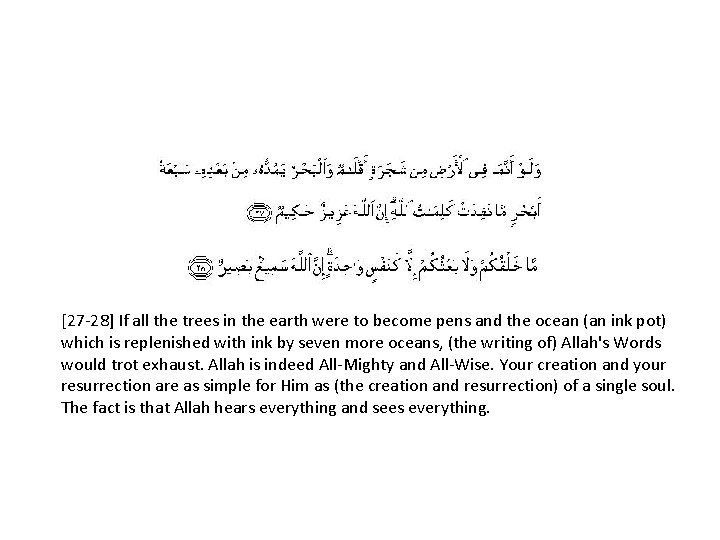 وَلَوْ أَنَّمَا فِى ٱلْأَرْضِ مِن شَجَرَةٍ أَقْلَـٰمٌ وَٱلْبَحْرُ يَمُدُّهُۥ مِنۢ بَعْدِهِۦ سَبْعَةُ
أَبْحُرٍ مَّا نَفِدَتْ كَلِمَـٰتُ ٱللَّهِ ۗ إِنَّ ٱللَّهَ عَزِيزٌ حَكِيمٌ ﴿٢٧﴾
مَّا خَلْقُكُمْ وَلَا بَعْثُكُمْ إِلَّا كَنَفْسٍ وَٰحِدَةٍ ۗ إِنَّ ٱللَّهَ سَمِيعٌۢ بَصِيرٌ ﴿٢٨﴾
[27-28] If all the trees in the earth were to become pens and the ocean (an ink pot)
which is replenished with ink by seven more oceans, (the writing of) Allah's Words
would trot exhaust. Allah is indeed All-Mighty and All-Wise. Your creation and your
resurrection are as simple for Him as (the creation and resurrection) of a single soul.
The fact is that Allah hears everything and sees everything.